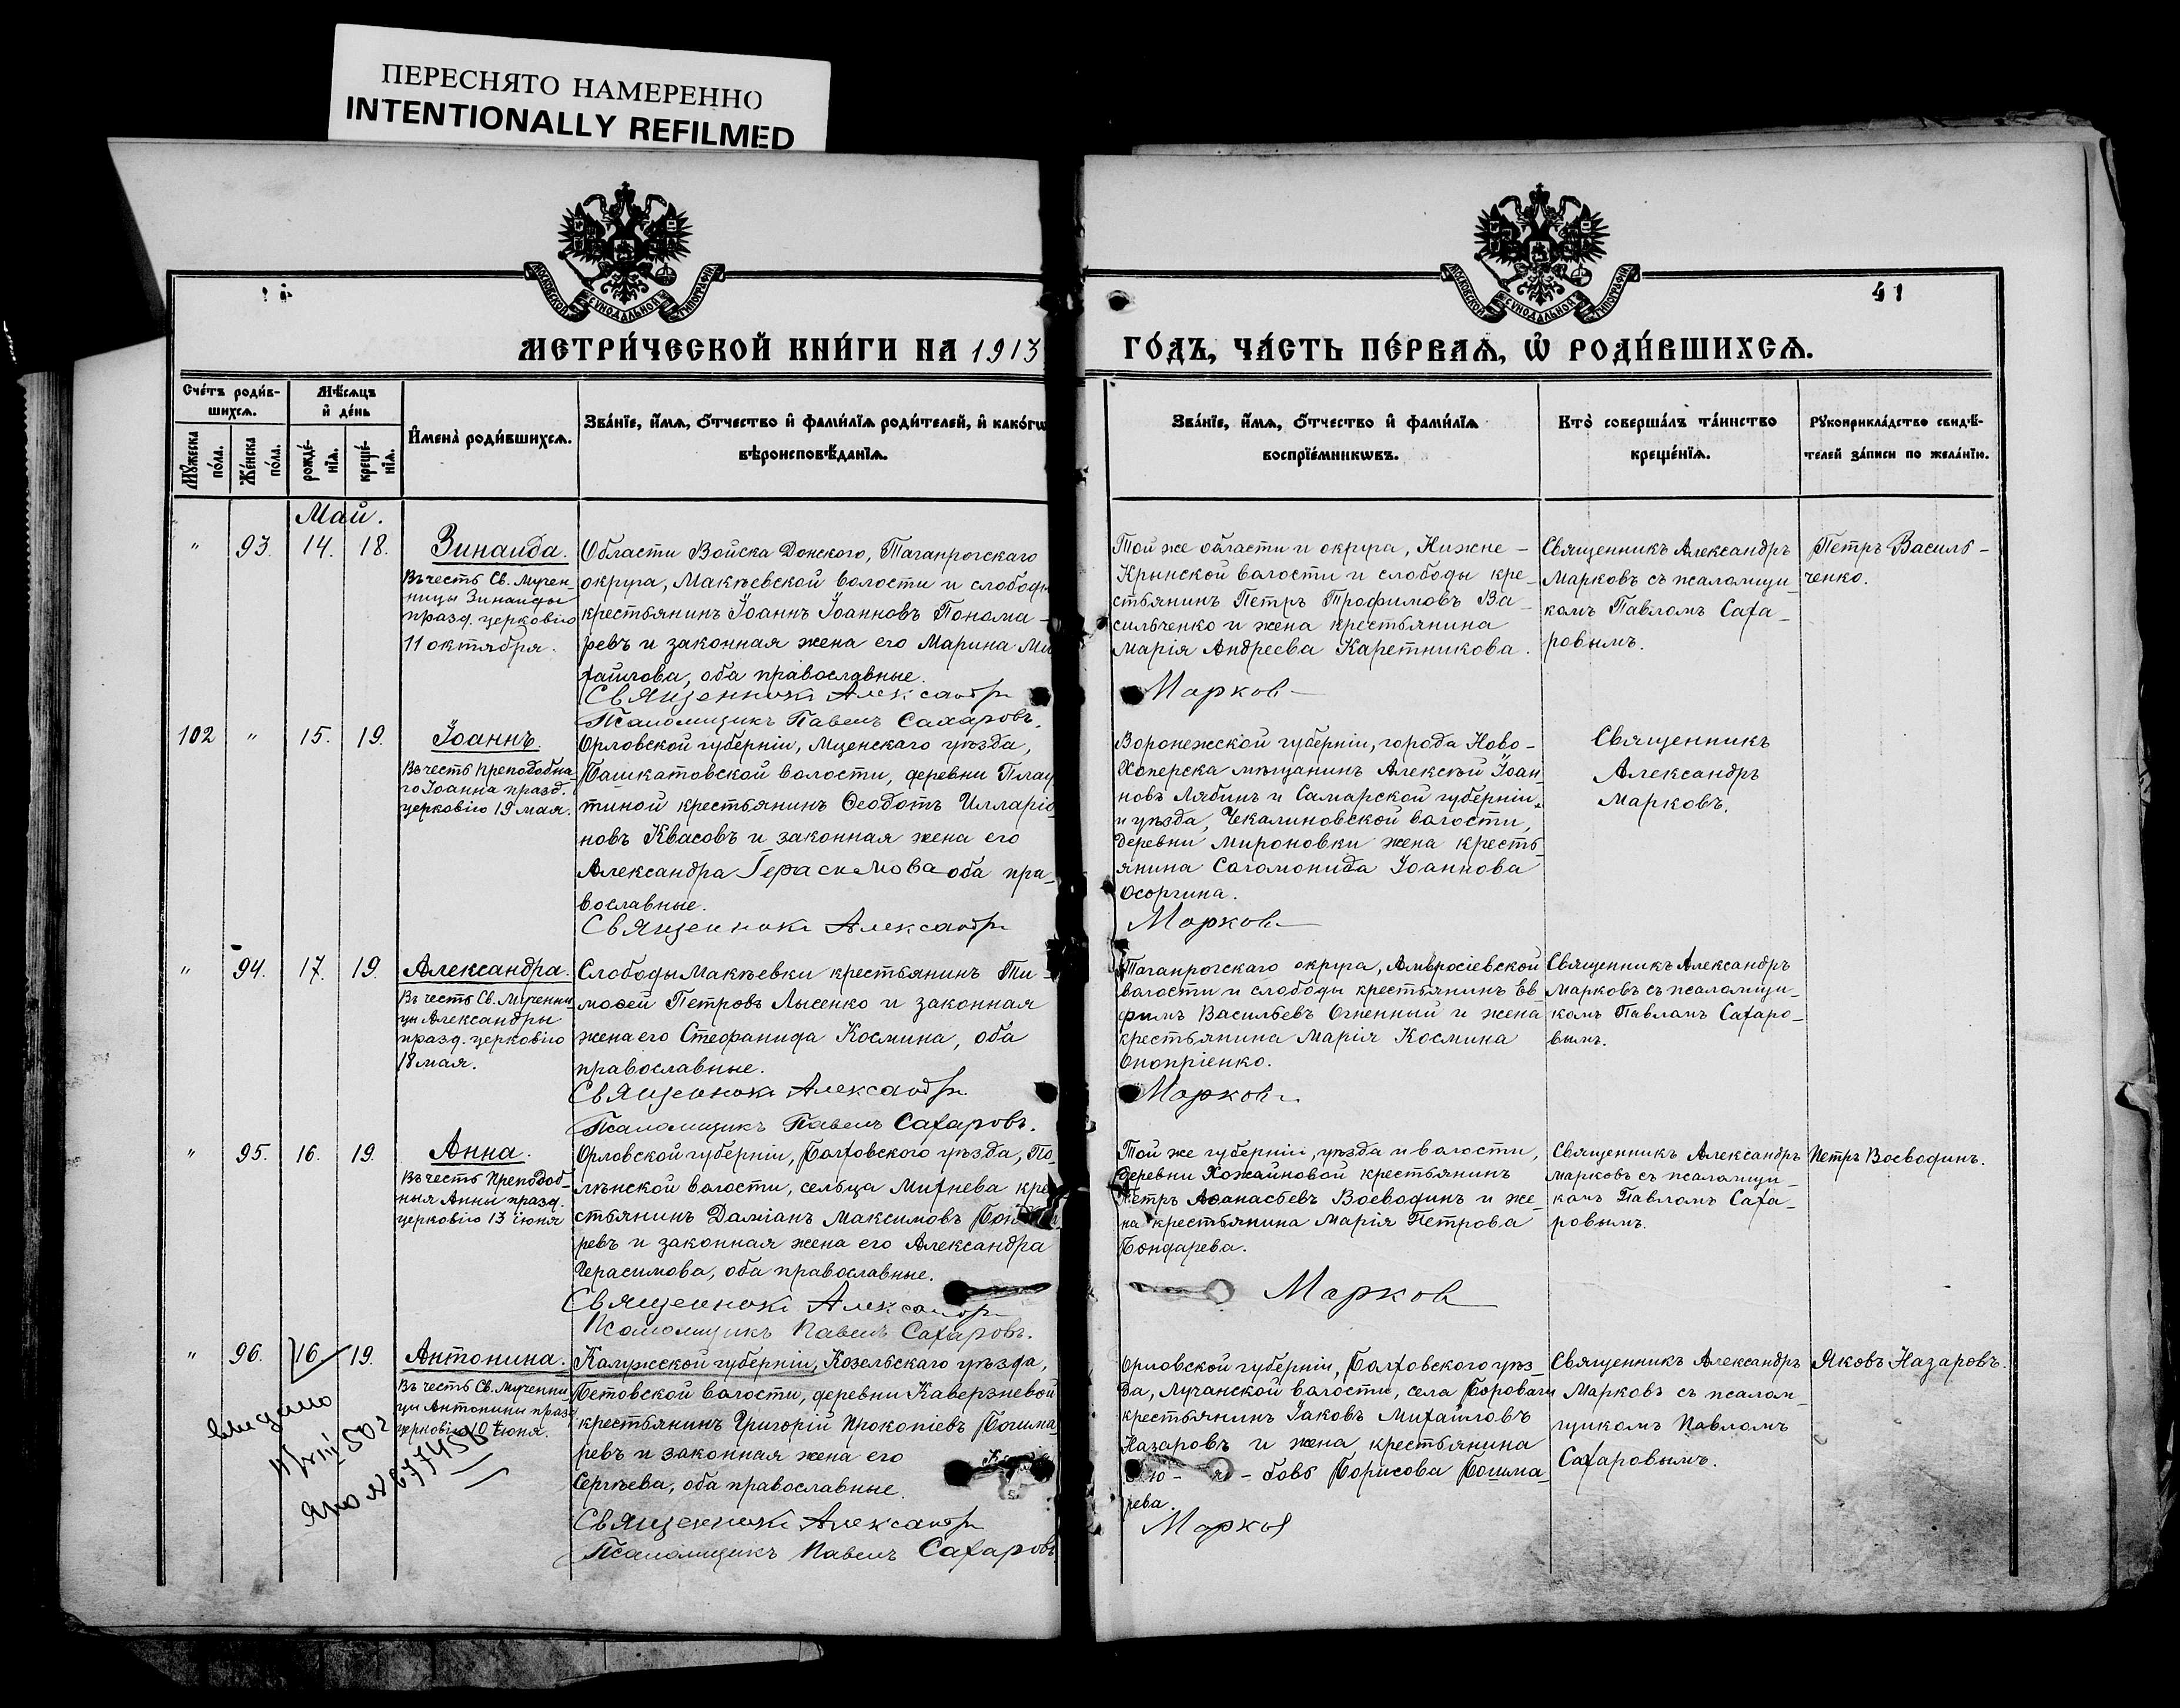 ПЕРЕСНЯТО НАМЕРЕННО
INTENTIONALLY REFILMED
МОСКОВСКОЙ СУНОДАЛЬНОЙ ТИПОГРАФІИ
МОСКОВСКОЙ СУНОДАЛЬНОЙ ТИПОГРАФІИ
41
МЕТРИ́ЧЕСКОЙ КНИ́ГИ НА 1913
ГО́ДЪ, ЧА́СТЬ ПЕ́РВАѦ, Ѡ РОДИ́ВШИХСѦ.
Сче́тъ роди́в-
шихсѧ.
Мѣ́сѧцъ
и҆ де́нь
Мꙋ́жеска
по́ла.
Же́нска
по́ла.
рожде́-
нїѧ.
креще́-
нїѧ.
И҆мена̀ роди́вшихсѧ.
Зва́нїе, и҆́мѧ, ѻ҆́тчество и҆ фами́лїѧ роди́телей, и҆ како́гѡ
вѣроисповѣ́данїѧ.
Зва́нїе, и҆́мѧ, ѻ҆́тчество и҆ фами́лїѧ
воспрїе́мникѡвъ.
Кто̀ соверша́лъ та́инство
креще́нїѧ.
Рꙋкоприкла́дство свидѣ́-
телей за́писи по жела́нїю.
Май.
" 93. 14. 18. Зинаида.
Въ честь Св. Мучен-
ницы Зинаиды
празд. церковію
11 октября.
Области Войска Донского, Таганрогскаго
округа, Макѣевской волости и слободы
крестьянинъ Іоаннъ Іоанновъ Понома-
ревъ и законная жена его Марина Ми
хайлова, оба православные.
Священникъ Александръ
Псаломщикъ Павелъ Сахаровъ.
Той же области и округа, Нижне-
Крынской волости и слободы кре-
стьянинъ Петръ Трофимовъ Ва-
сильченко и жена крестьянина
Марія Андреева Каретникова.
Марковъ
Священникъ Александръ
Марковъ съ псаломщи-
комъ Павломъ Саха-
ровымъ.
Петръ Василь-
ченко.
102 " 15. 19. Іоаннъ.
Въ честь Преподобна-
го Іоанна празд.
церковію 19 мая.
Орловской губерніи, Мценскаго уѣзда,
Башкатовской волости, деревни Плау
тиной крестьянинъ Ѳеодотъ Илларіо
новъ Квасовъ и законная жена его
Александра Герасимова оба пра-
вославные.
Священникъ Александръ
Воронежской губерніи, города Ново-
Хоперска мѣщанинъ Алексѣй Іоан
новъ Лябинъ и Самарской губерніи
и уѣзда, Чекалиновской волости,
деревни Мироновки жена кресть-
янина Соломонида Іоаннова
Осоргина.
Марковъ
Священникъ
Александръ
Марковъ.
" 94. 17. 19. Александра.
Въ честь Св. Мученни
цы Александры
празд. церковію
18 мая.
Слободы Макѣевки крестьянинъ Ти-
моѳей Петровъ Лысенко и законная
жена его Стефанида Космина, оба
православные.
Священникъ Александръ
Псаломщикъ Павелъ Сахаровъ.
Таганрогскаго округа, Амвросіевской
волости и слободы крестьянинъ Ев-
фимъ Васильевъ Огненный и жена
крестьянина Марія Космина
Оноприенко.
Марковъ
Священникъ Александръ
Марковъ съ псаломщи-
комъ Павломъ Сахаро-
вымъ.
" 95. 16. 19. Анна.
Въ честь Преподоб-
ныя Анны празд.
церковію 13 іюня
Орловской губерніи, Болховского уѣзда, По-
лѣнской волости, сельца Михнева кре
стьянинъ Даміанъ Максимовъ
ревъ и законная жена его Александра
Герасимова, оба православные.
Священникъ Александръ
Псаломщикъ Павелъ Сахаровъ.
Той же губерніи, уѣзда и волости,
деревни Хожаиновой крестьянинъ
Петръ Аѳанасьевъ Воеводинъ и же-
на крестьянина Марія Петрова
Бондарева.
Марковъ
Священникъ Александръ
Марковъ съ псаломщи-
комъ Павломъ Саха-
ровымъ.
Петръ Воеводинъ.
" 96. 16. 19. Антонина.
Въ честь Св. Мученни
цы Антонины празд
церковію 10 іюня.
выдано
Калужской губерніи, Козельскаго уѣзда,
Бетовской волости, деревни Каверзневой
крестьянинъ Григорій Прокопіевъ Богима
ревъ и законная жена его
Сергѣева, оба православные.
Священникъ Александръ
Псаломщикъ Павелъ Сахаровъ
Орловской губерніи, Болховского уѣз-
да, Лучанской волости, села
крестьянинъ Іаковъ Михайловъ
Назаровъ и жена крестьянина
бовь Борисова Богима
рева.
Марковъ
Священникъ Александръ
Марковъ съ псалом-
щикомъ Павломъ
Сахаровымъ.
Яковъ Назаровъ.